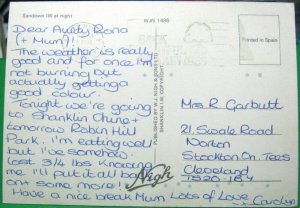 Sandown IW at night
W.IW. 1486
Dear Aunty Rona
(+ Mum)!
The weather is really
good and for once i'm
not burning but
actually getting a
good colour.
Tonight we're going
to Shanklin Chine +
tomorrow Robin Hill
Park. i'm eating well
but i've somehow
lost 3/4 lbs knowing
me i'll put it all back
on + some more!
Have a nice break Mum Lots of Love
Carolyn
Nigh
PUBLISHED BY W.J. NIGH & SONS LTD
SHANKLIN I.W. COPYRIGHT
Printed in Spain
Mrs R Garbutt
21, Swale Road
Norton
Stockton On Tees
Cleveland